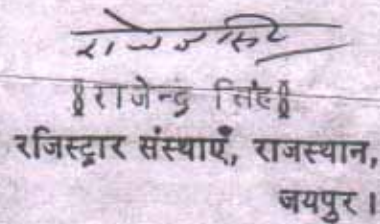 राजेन्द्र सिंह
§राजेन्द्र सिंह§
रजिस्ट्रार संस्थाएँ, राजस्थान,
जयपुर।